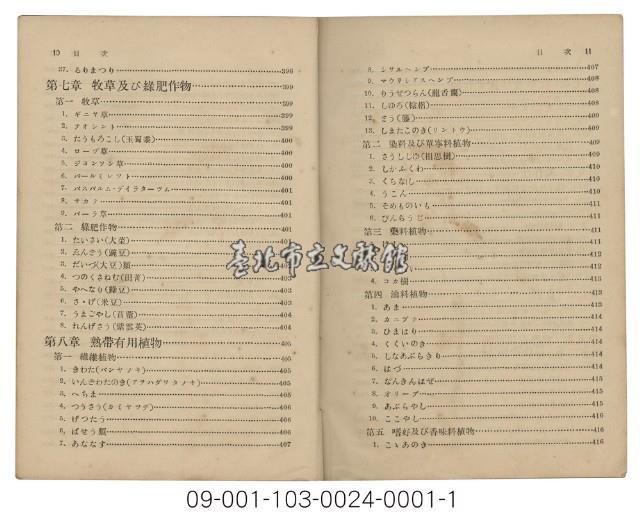 10 目次
37. とりまつり 398
第七章 牧草及び緑肥作物 399
第一 牧草 399
1. ギニヤ草 399
2. テオシント 400
3. たうもろこし(玉蜀黍) 400
4. ローヅ草 400
5. ジヨンソン草 400
6. パールミレツト 401
7. パスパルム・デイラターツム 401
8. サカテ 401
9. パーラ草 401
第二 緑肥作物 401
1. たいさい(大菜) 402
2. ゑんどう(豌豆)
3. だいづ(大豆)類
4. つのくさねむ(田菁) 403
5. やへなり(緑豆) 403
6. さゝげ(米豆) 403
7. うまごやし(苜蓿) 404
8. れんげさう(紫雲英) 404
第八章 熱帶有用植物 405
第一 繊維植物 405
1. きわた(パンヤノキ) 405
2. いんきわたのき(アヲハダワタノキ) 405
3. へちま 405
4. つうさう(カミヤツデ) 406
5. げつたう 406
6. ばせう類 406
7. あななす 407
目次 11
8. シサルヘンプ 407
9. マウリシアスヘンプ 408
10. りうぜつらん(龍舌蘭) 408
11. しゆろ(棕梠) 408
12. とう(籐) 408
13. しまたこのき(リントウ) 409
第二 染料及び單寧料植物 409
1. さうしじゆ(相思樹) 409
2. しかふくわ 410
3. くちなし 410
4. うこん 410
5. そめものいも 411
6. びんらうじ 411
第三 藥料植物 411
411
412
4. コカ樹 412
第四 油料植物 413
1. あま 413
2. カニプア 414
3. ひまはり 414
4. くくいのき 414
5. しなあぶらぎり 414
6. はづ 415
7. なんきんはぜ 415
8. オリーブ 415
9. あぶらやし 415
10. ここやし 415
第五 嗜好及び香味料植物 416
1. こゝあのき 416
臺北市立文獻館
09-001-103-0024-0001-1